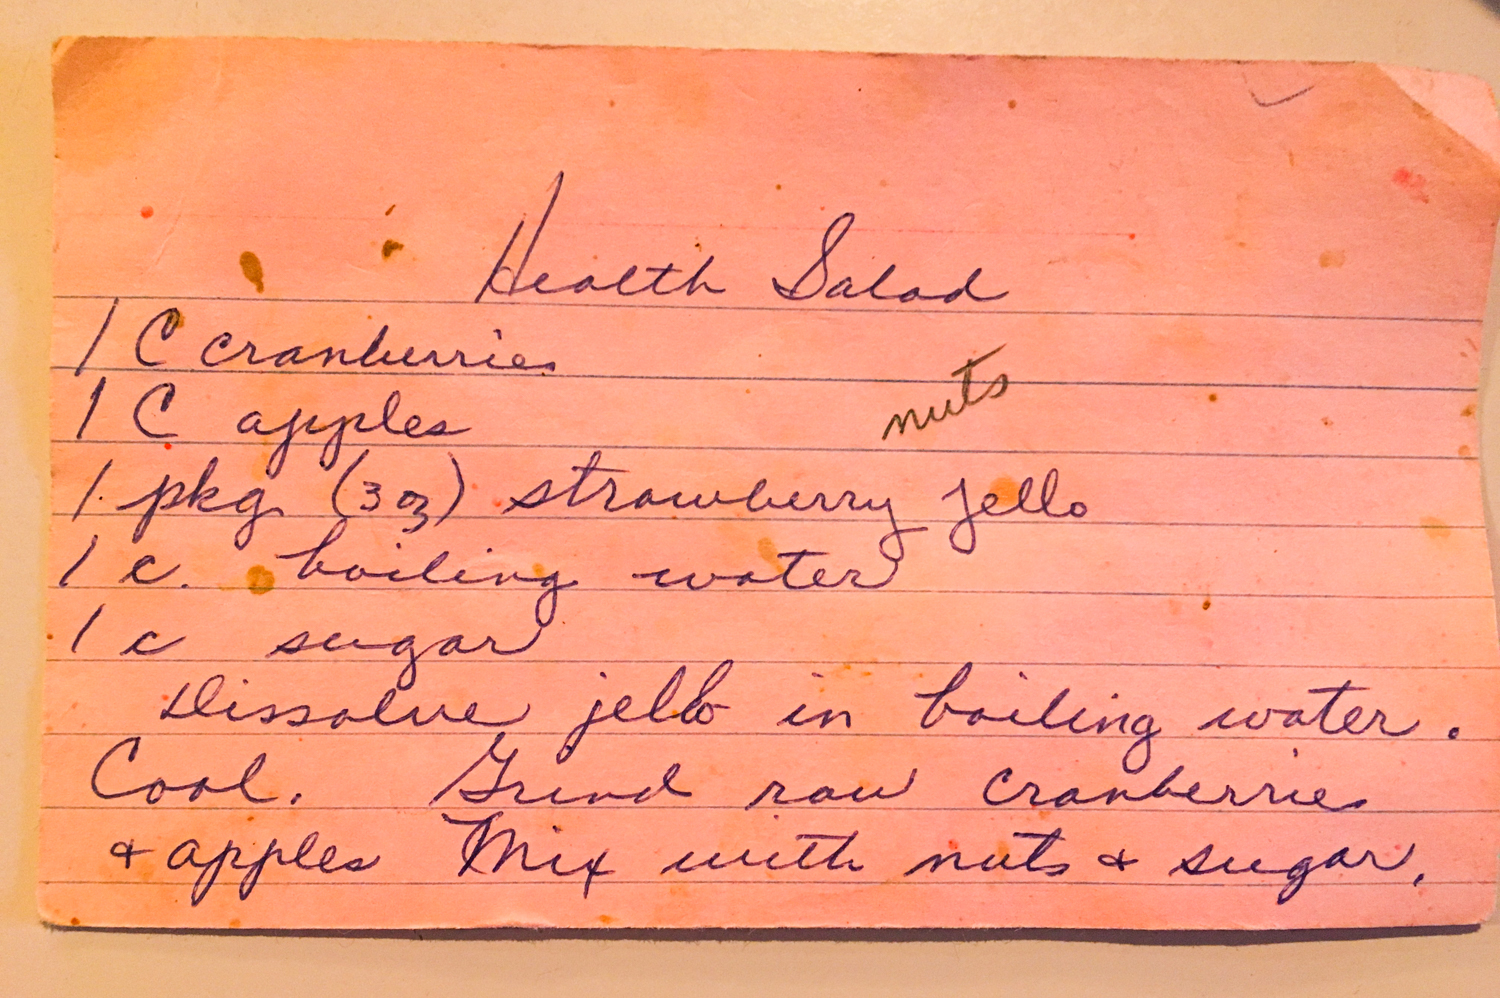 Health Salad
1 C cranberries
1 C apples
nuts
1 pkg (3 oz) strawberry jello
1 c. boiling water
1 c sugar
Dissolve jello in boiling water.
Cool. Grind raw cranberries
& apples Mix with nuts & sugar.